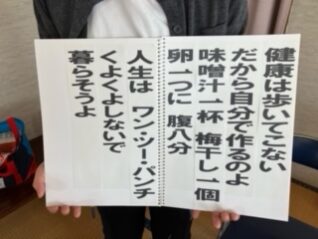 健康は歩いてこない
だから自分で作るのよ
味噌汁一杯 梅干し一個
卵一つに 腹八分
人生は ワン・ツー・パンチ
くよくよしないで
暮らそうよ